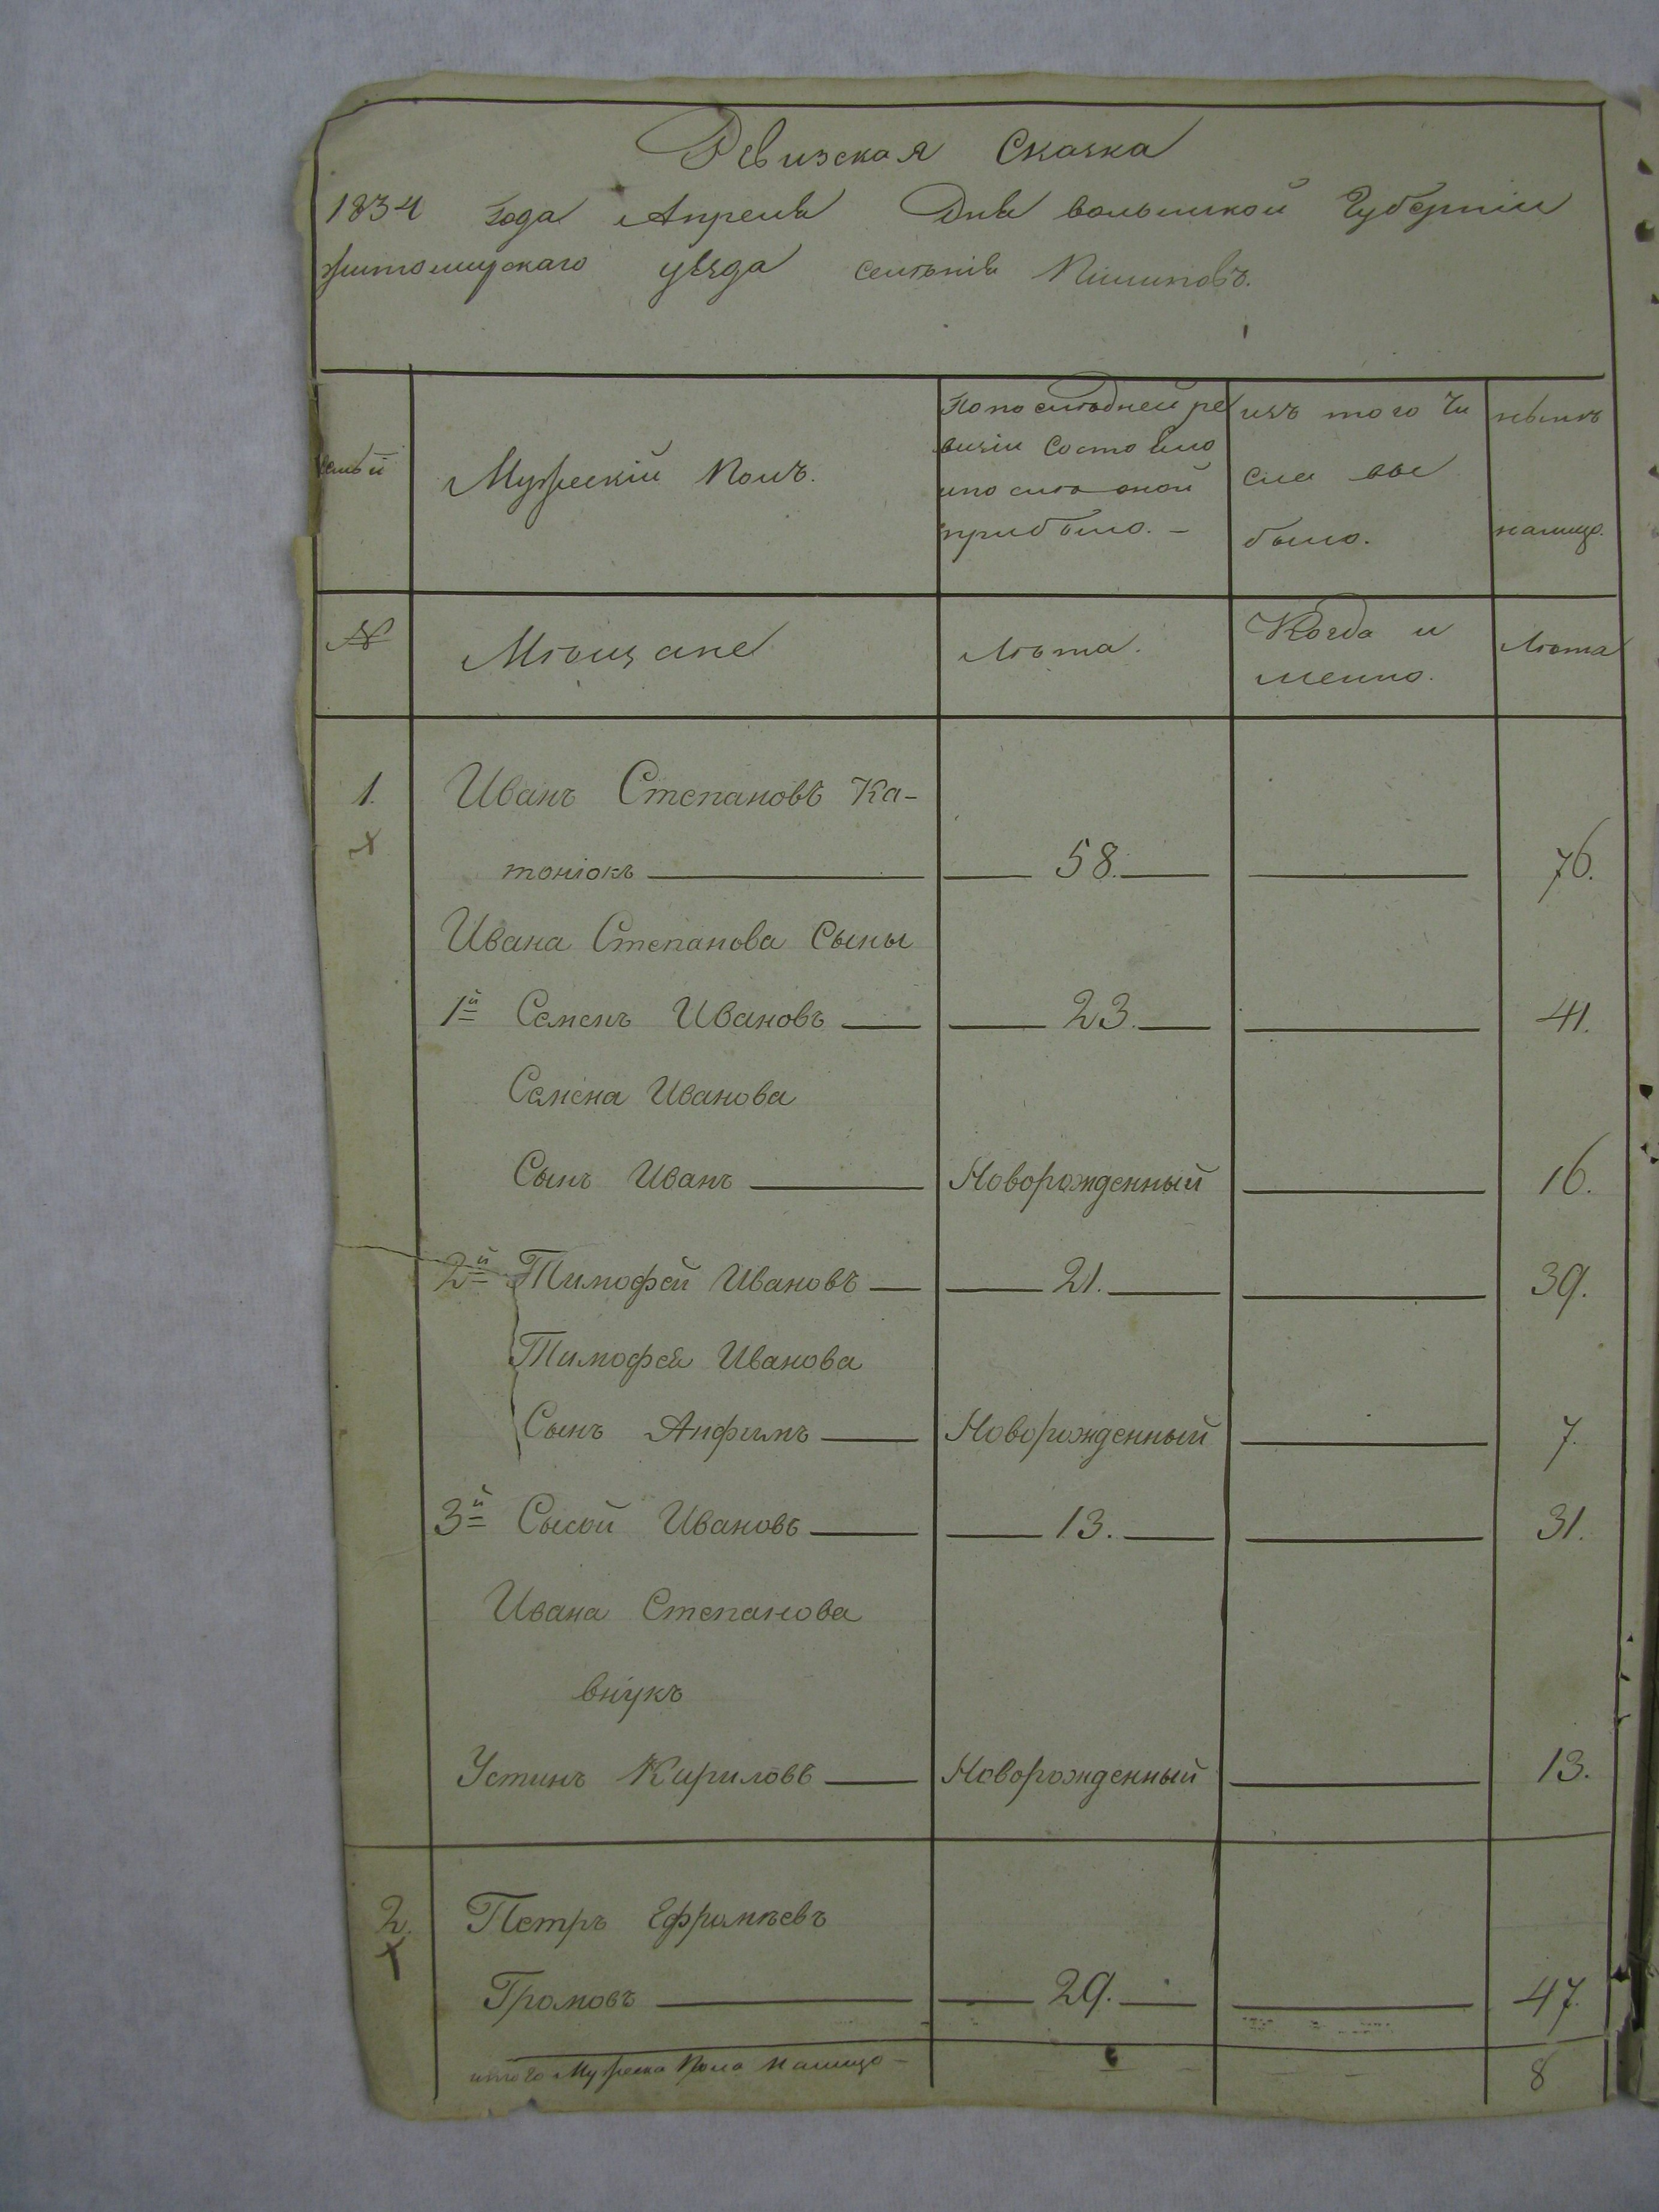 Ревизская Сказка
1834 года Апреля Дня волынской Губернiи
житомирскаго уѣзда селенiя Пилиповъ.
семьи
Мужескiй Полъ.
По последней ре
визiи Состояло
ипослѣ оной
прибыло. —
изъ того Чи
сла вы
было.
нынѣ
налицо.
№
Мѣщане
Лѣта.
Когда и
менно.
Лѣта
1. Иванъ Степановъ Ка-
х
тонюкъ — 58. — 76.
Ивана Степанова Сыны
1й Семенъ Ивановъ — 23. — 41.
Семена Иванова
Сынъ Иванъ — Новорожденный — 16.
2й Тимофей Ивановъ — 21. — 39.
Тимофея Иванова
Сынъ Анфимъ — Новорожденный — 7.
3й Сысой Ивановъ — 13. — 31.
Ивана Степанова
внукъ
Устинъ Кириловъ — Новорожденный — 13.
2. Петръ Ефрамѣевъ
х
Громовъ — 29. — 47.
итого Мужеска Пола налицо — 8